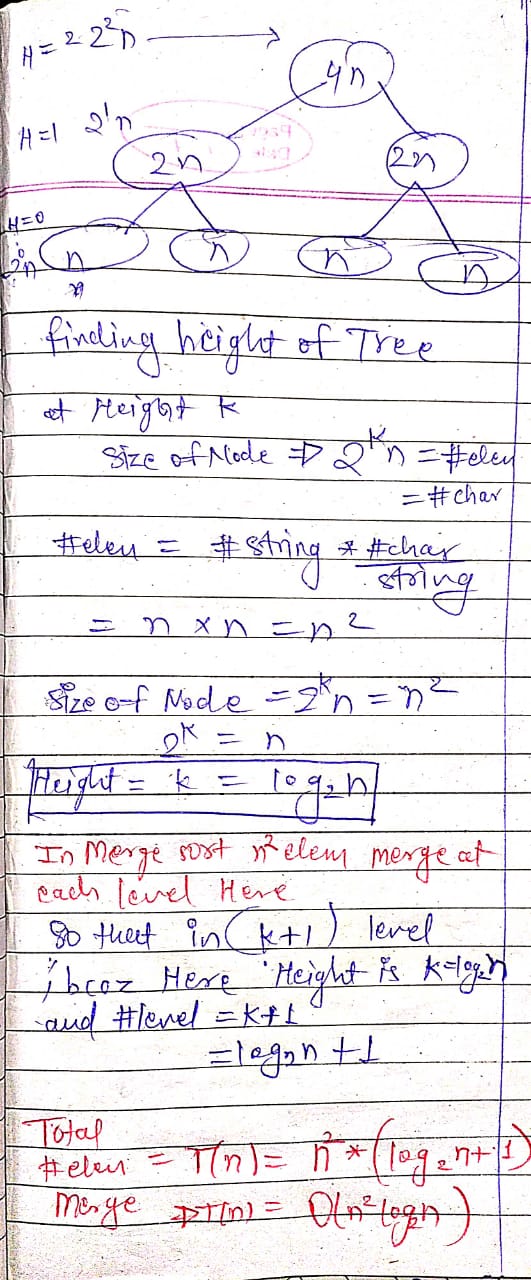 H = 2 2²n
4n
H=1 2¹n
2n 2n
H=0
2⁰n n n n n
n
finding height of Tree
at Height k
Size of Node ⇒ 2ᵏn = #elem
= #char
#elem = # string * #char/string
= n × n = n²
Size of Node = 2ᵏn = n²
2ᵏ = n
Height = k = log₂n
In Merge sort n² elem merge at
each level Here
So that in (k+1) level
; bcoz Here Height is k=log₂n
and #level = k+1
= log₂n + 1
Total
#elem = T(n) = n² * (log₂n + 1)
Merge ⇒ T(n) = O(n² log₂n)